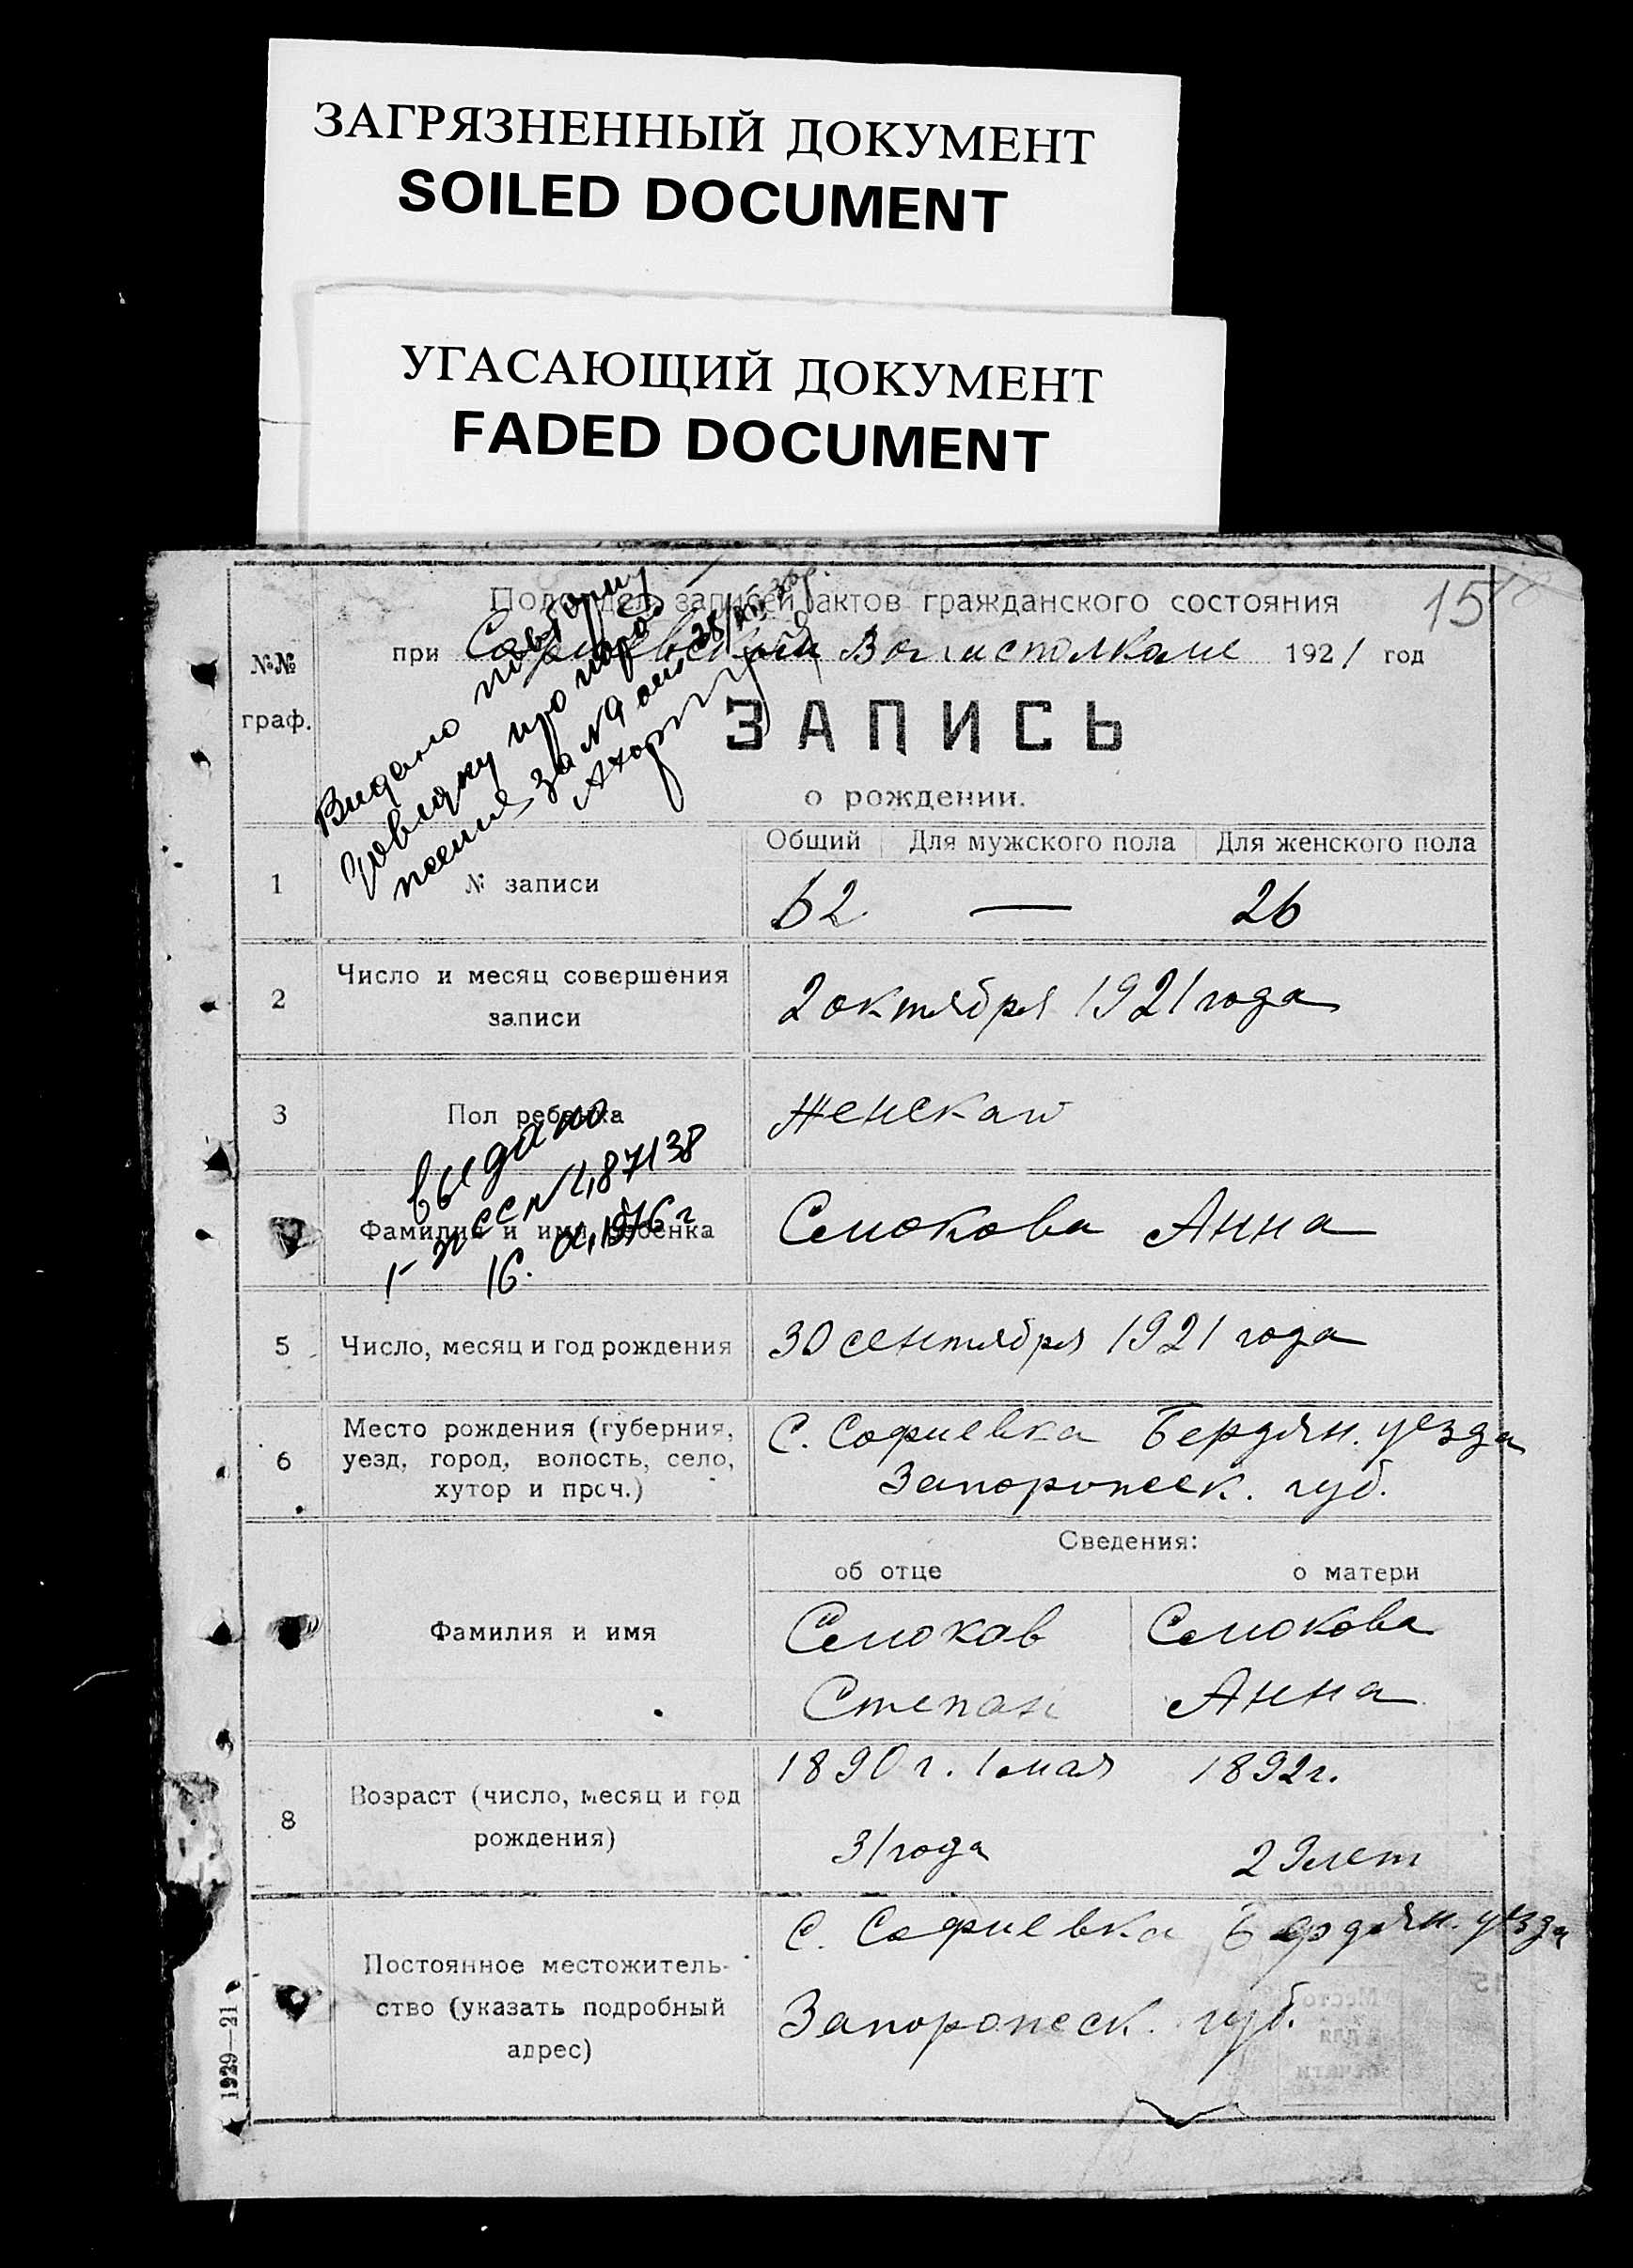 ЗАГРЯЗНЕННЫЙ ДОКУМЕНТ
SOILED DOCUMENT
УГАСАЮЩИЙ ДОКУМЕНТ
FADED DOCUMENT
записей актов гражданского состояния
15
при Софиевском Волисполкоме 1921 год
№№
граф.
ЗАПИСЬ
о рождении.
Видано повторну
довидку про народ
ження за №
Общий Для мужского пола Для женского пола
1 № записи 62 — 26
2 Число и месяц совершения
записи
2 октября 1921 года
3 Пол ребенка Женскаго
выдано
16.
Фамилия и имя ребенка Семокова Анна
5 Число, месяц и год рождения 30 сентября 1921 года
6 Место рождения (губерния,
уезд, город, волость, село,
хутор и проч.)
С. Софиевка Бердян. уезда
Запорожск. губ.
Сведения:
об отце о матери
Фамилия и имя
Семоков Семокова
Степан Анна
8 Возраст (число, месяц и год
рождения)
1890 г. 1 мая 1892 г.
31 года 29 лет
Постоянное местожитель-
ство (указать подробный
адрес)
С. Софиевка Бердян. уезда
Запорожск. губ.
1929—21